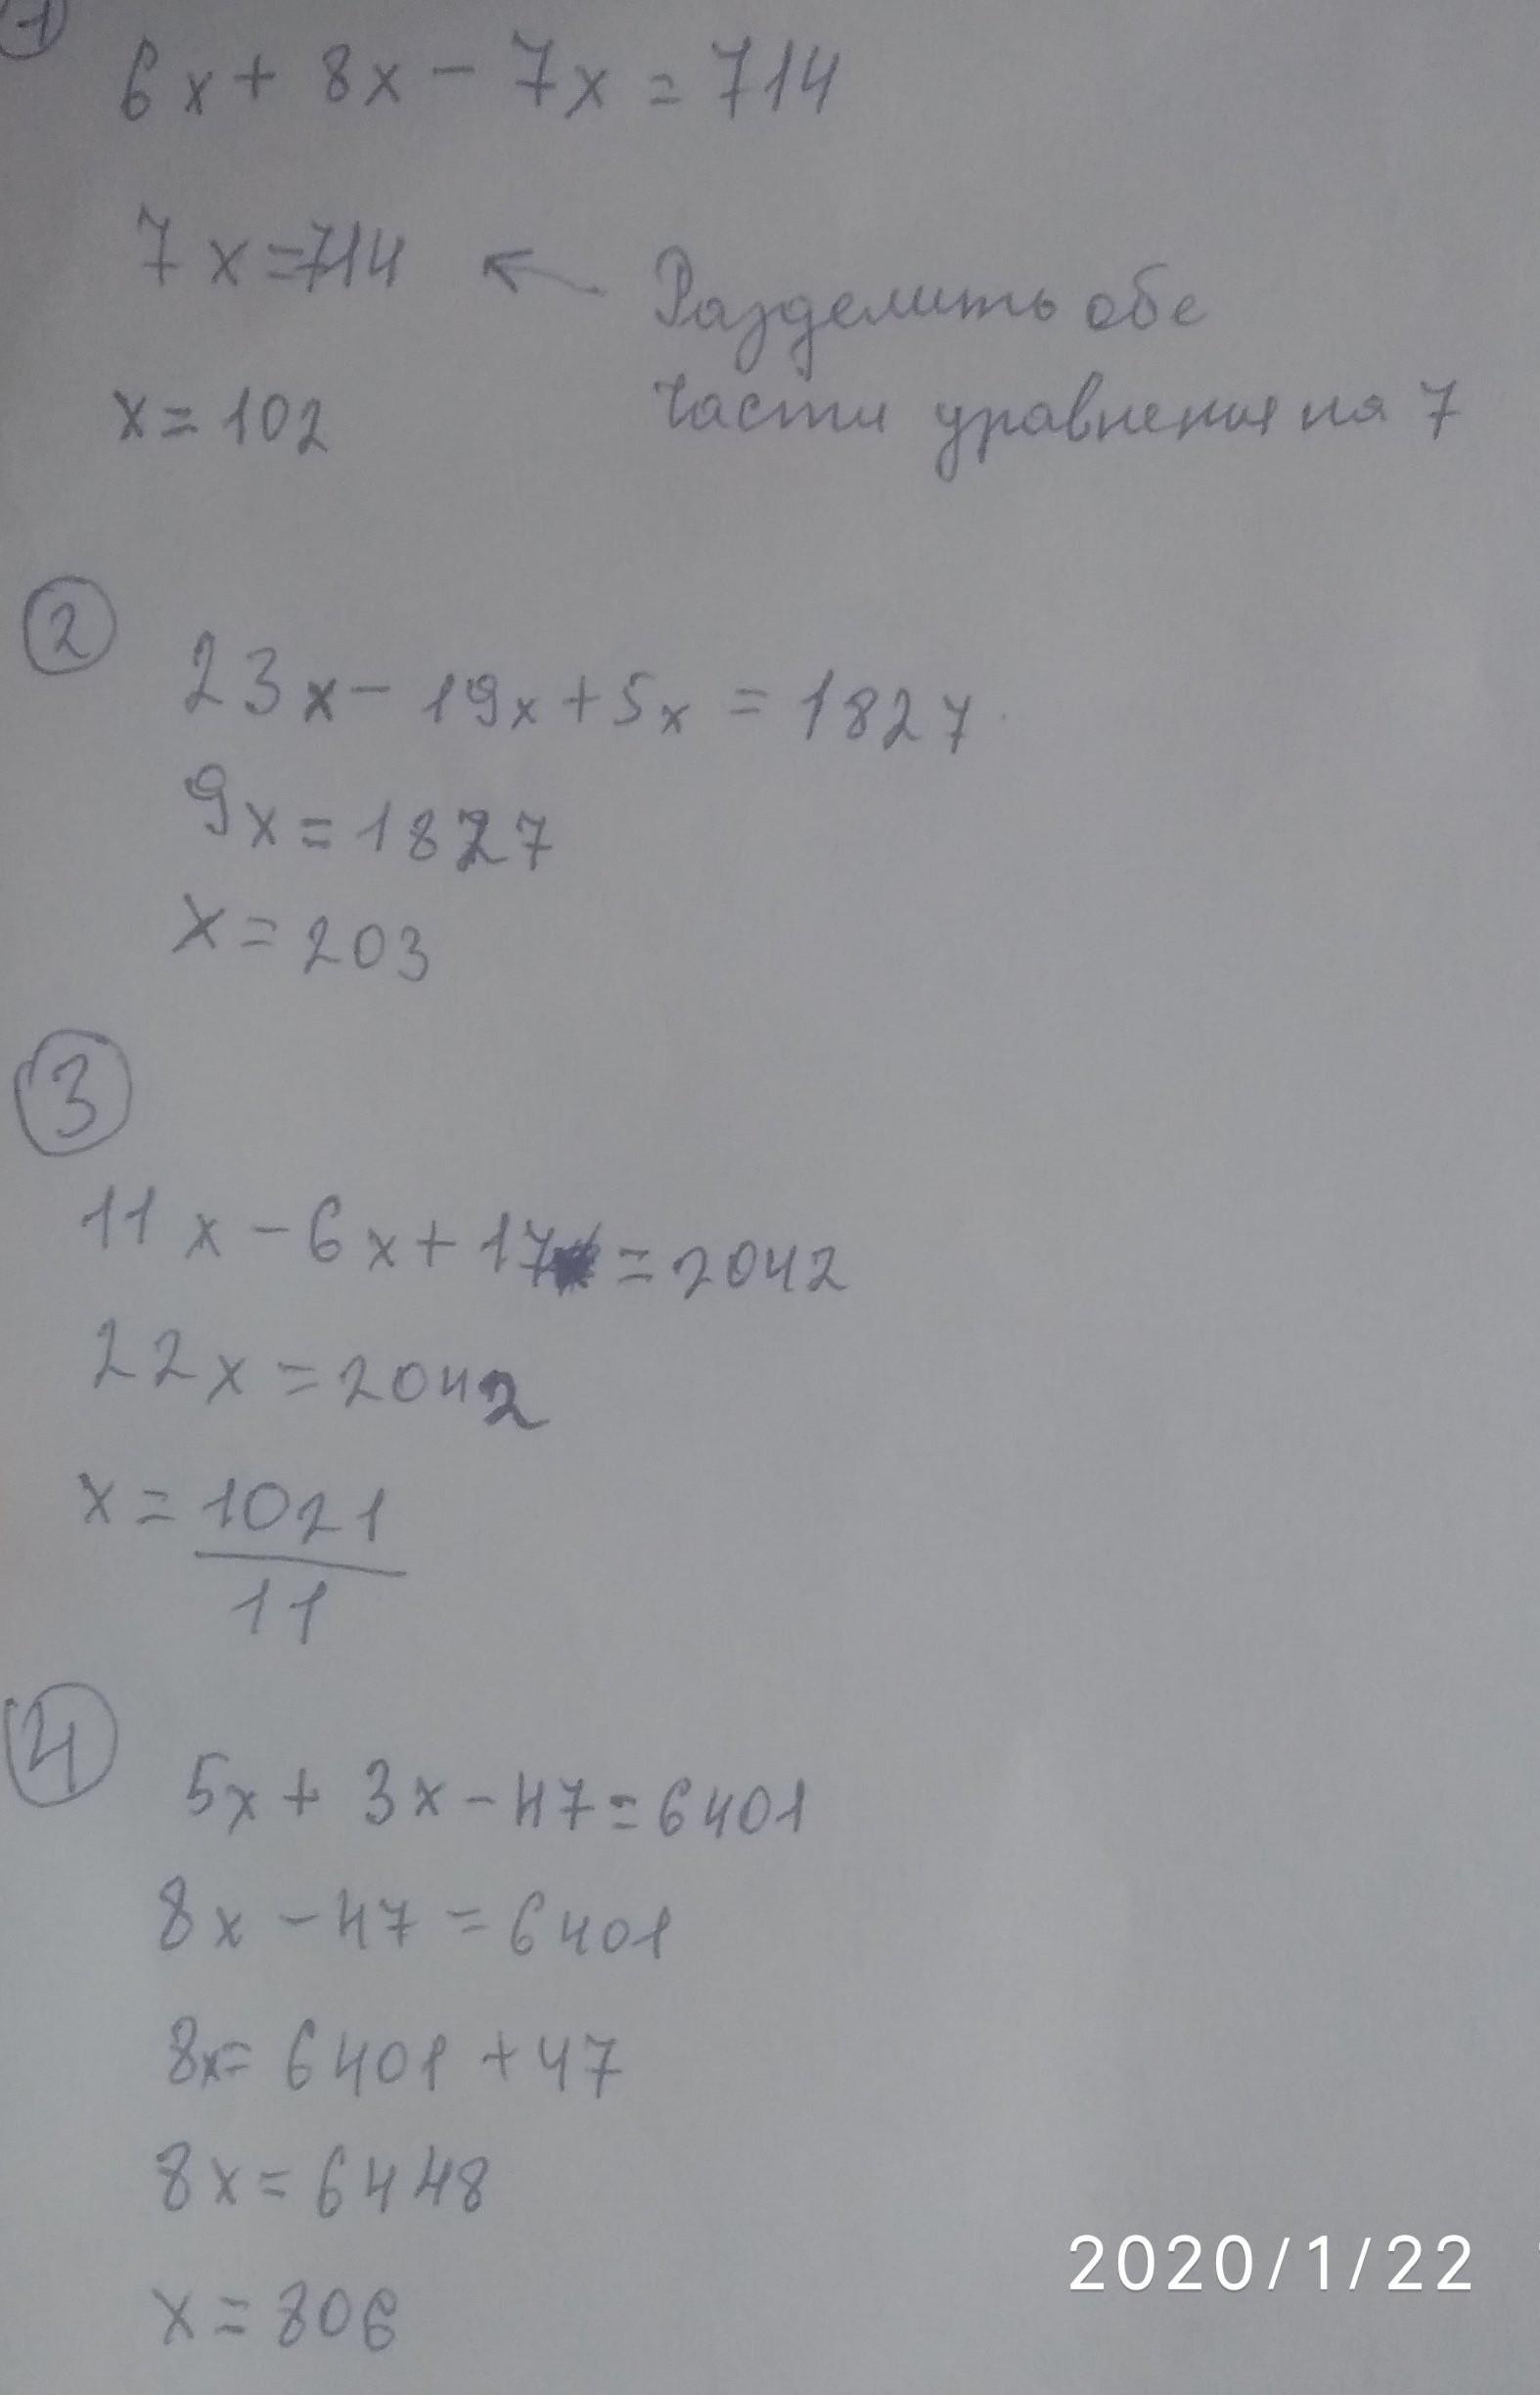 1
6x + 8x - 7x = 714
7x = 714 ← Разделить обе
части уравнения на 7
x = 102
2
23x - 19x + 5x = 1827
9x = 1827
x = 203
3
11x - 6x + 17 = 2042
22x = 2042
x = 1021
11
4
5x + 3x - 47 = 6401
8x - 47 = 6401
8x = 6401 + 47
8x = 6448
x = 806
2020/1/22